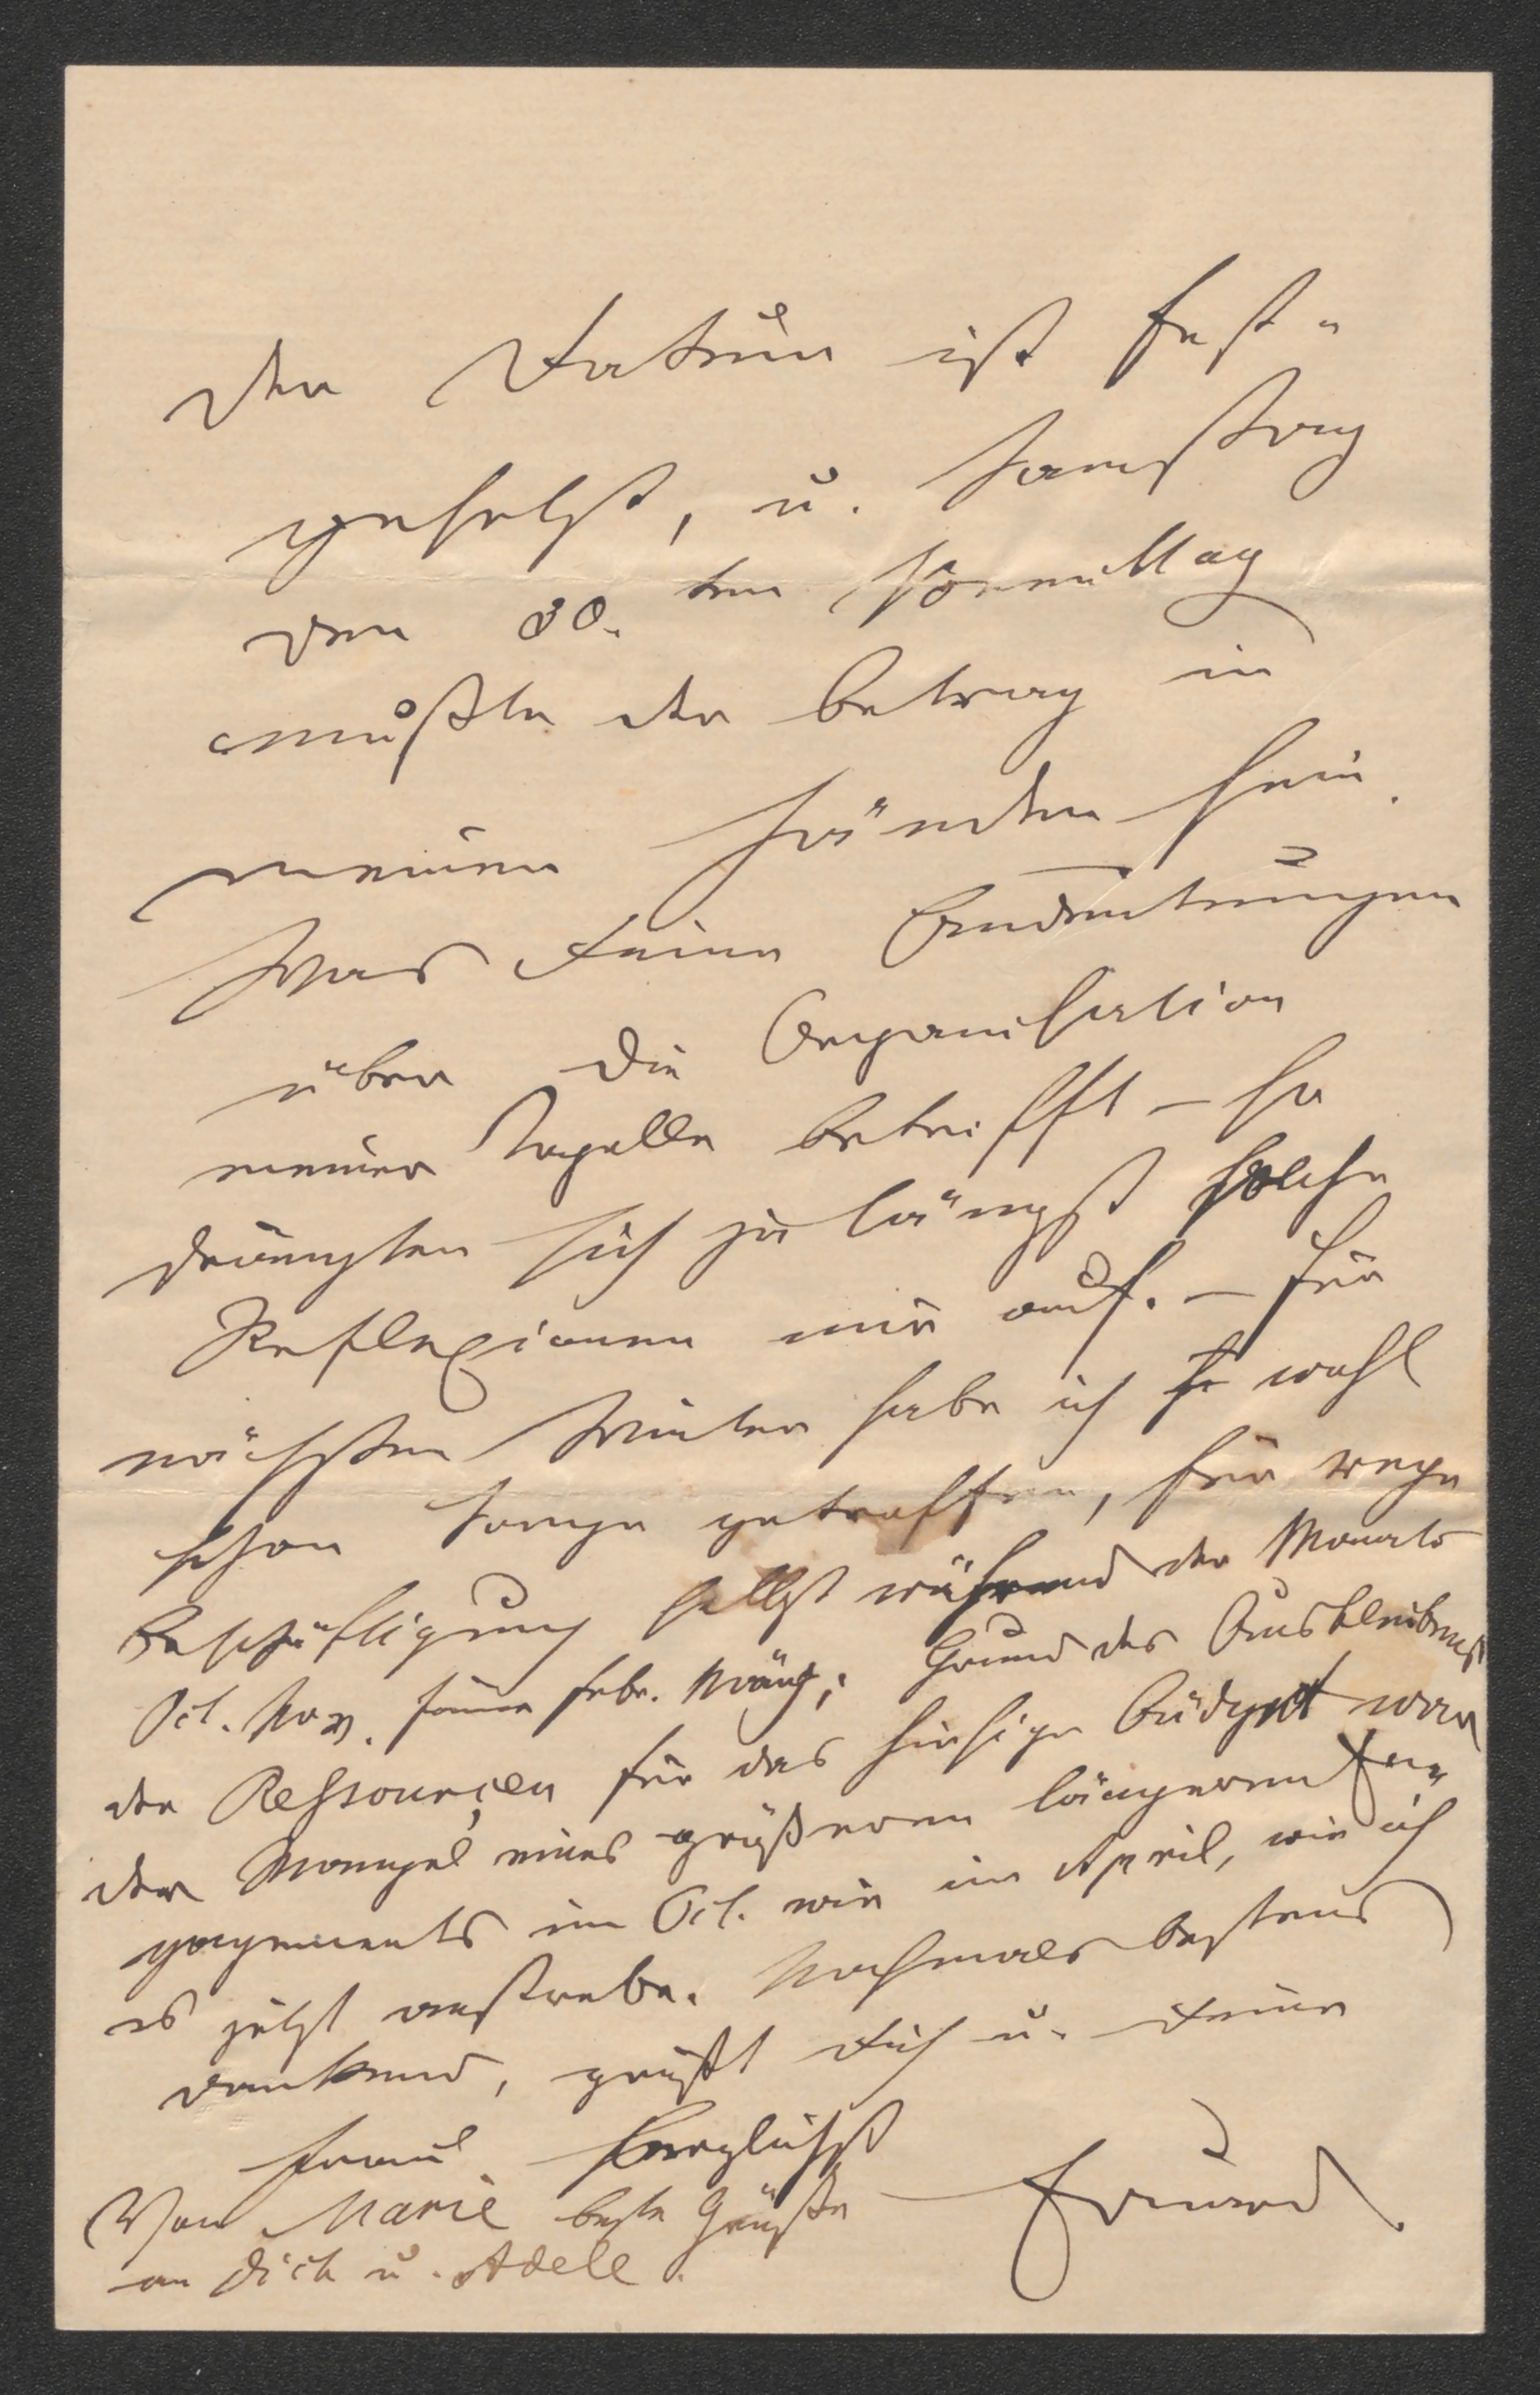 der Datum ist fest-
gesetzt, u. Samstag
den 30. ten Vormittag
müßte der Betrag in
meinen Händen sein.
Was Deine Andeutungen
über die Organisation
meiner Kapelle betrifft – so
drängten sich ja längst solche
Reflexionen mir auf. – Für
nächsten Winter habe ich so wohl
schon Sorge getroffen, für rege
Beschäftigung selbst während der Monate
Oct. Nov. Jänner Febr. März; Grund des Ausbleibens
der Ressourçen für das hiesige Budget war
der Mangel eines größeren längeren En-
gagements im Oct. wie im April, wie ich
es jetzt anstrebe. Nochmals bestens
dankend, grüßt Dich u. Deine
Frau herzlichst
Eduard
Von Marie beste Grüße
an Dich u. Adele.